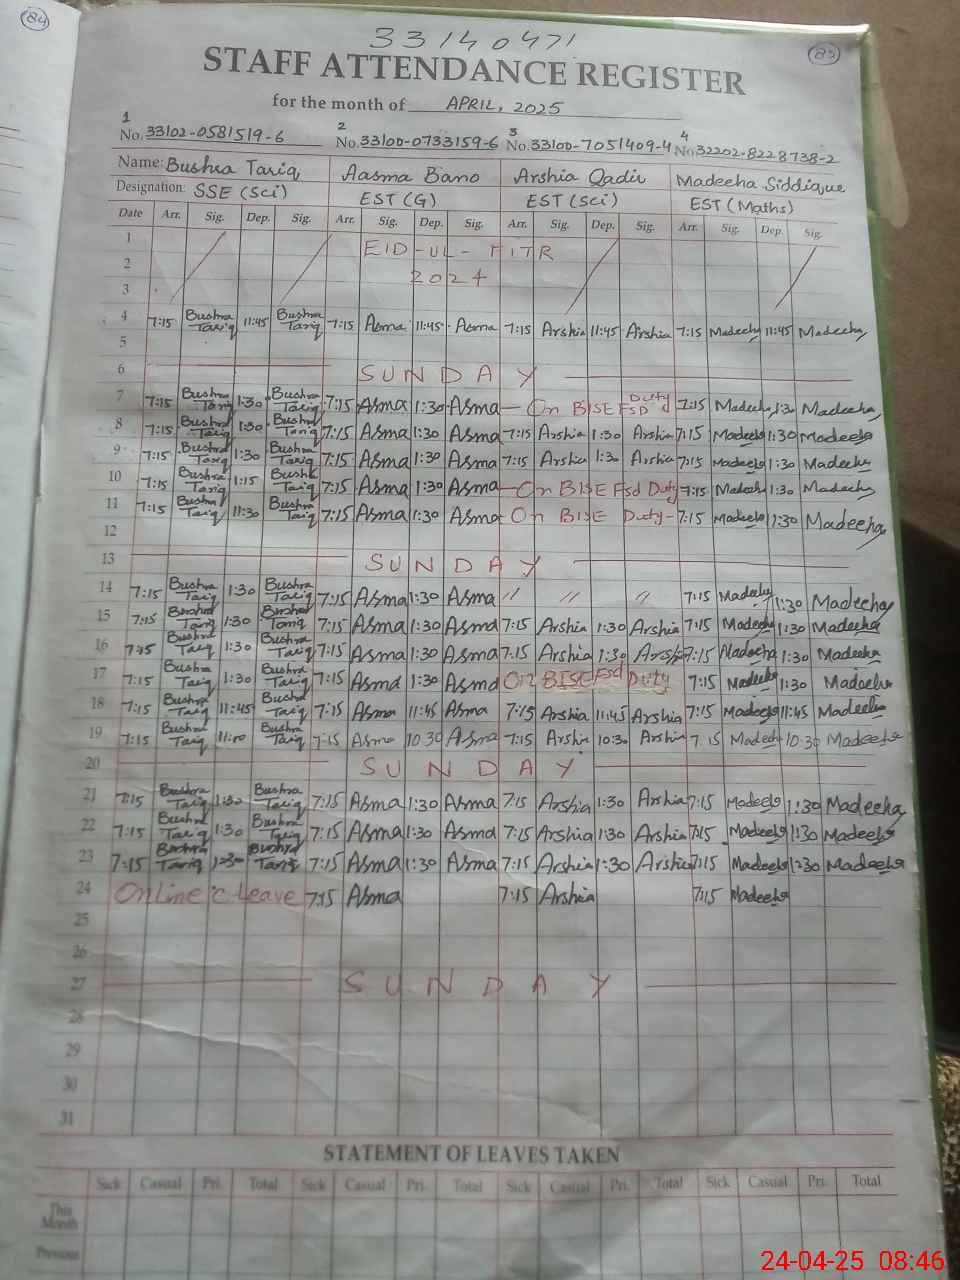 84
33140471
83
STAFF ATTENDANCE REGISTER
for the month of APRIL, 2025
1 2 3 4
No. 33102-0581519-6 No. 33100-0733159-6 No. 33100-7051409-4 No. 32202-8228738-2
Name: Bushra Tariq Aasma Bano Arshia Qadir Madeeha Siddique
Designation: SSE (Sci) EST (G) EST (Sci) EST (Maths)
Date Arr. Sig. Dep. Sig. Arr. Sig. Dep. Sig. Arr. Sig. Dep. Sig. Arr. Sig. Dep. Sig.
1 EID-UL-FITR
2 2024
3
4 7:15 Bushra Tariq 11:45 Bushra Tariq 7:15 Asma 11:45 Asma 7:15 Arshia 11:45 Arshia 7:15 Madeeha 11:45 Madeeha
5
6 SUNDAY
7 7:15 Bushra Tariq 1:30 Bushra Tariq 7:15 Asma 1:30 Asma - On BISE FSD Duty 7:15 Madeeha 1:30 Madeeha
8 7:15 Bushra Tariq 1:30 Bushra Tariq 7:15 Asma 1:30 Asma 7:15 Arshia 1:30 Arshia 7:15 Madeeha 1:30 Madeeha
9 7:15 Bushra Tariq 1:30 Bushra Tariq 7:15 Asma 1:30 Asma 7:15 Arshia 1:30 Arshia 7:15 Madeeha 1:30 Madeeha
10 7:15 Bushra Tariq 1:15 Bushra Tariq 7:15 Asma 1:30 Asma - On BISE Fsd Duty 7:15 Madeeha 1:30 Madeeha
11 7:15 Bushra Tariq 11:30 Bushra Tariq 7:15 Asma 1:30 Asma On BISE Duty - 7:15 Madeeha 1:30 Madeeha
12
13 SUNDAY
14 7:15 Bushra Tariq 1:30 Bushra Tariq 7:15 Asma 1:30 Asma // // // 7:15 Madeeha 1:30 Madeeha
15 7:15 Bushra Tariq 1:30 Bushra Tariq 7:15 Asma 1:30 Asma 7:15 Arshia 1:30 Arshia 7:15 Madeeha 1:30 Madeeha
16 7:15 Bushra Tariq 1:30 Bushra Tariq 7:15 Asma 1:30 Asma 7:15 Arshia 1:30 Arshia 7:15 Madeeha 1:30 Madeeha
17 7:15 Bushra Tariq 1:30 Bushra Tariq 7:15 Asma 1:30 Asma On BISE Fsd Duty 7:15 Madeeha 1:30 Madeeha
18 7:15 Bushra Tariq 11:45 Bushra Tariq 7:15 Asma 11:45 Asma 7:15 Arshia 11:45 Arshia 7:15 Madeeha 11:45 Madeeha
19 7:15 Bushra Tariq Bushra Tariq 7:15 Asma 10:30 Asma 7:15 Arshia 10:30 Arshia 7:15 Madeeha 10:30 Madeeha
20 SUNDAY
21 7:15 Bushra Tariq 1:30 Bushra Tariq 7:15 Asma 1:30 Asma 7:15 Arshia 1:30 Arshia 7:15 Madeeha 1:30 Madeeha
22 7:15 Bushra Tariq 1:30 Bushra Tariq 7:15 Asma 1:30 Asma 7:15 Arshia 1:30 Arshia 7:15 Madeeha 1:30 Madeeha
23 7:15 Bushra Tariq 1:30 Bushra Tariq 7:15 Asma 1:30 Asma 7:15 Arshia 1:30 Arshia 7:15 Madeeha 1:30 Madeeha
24 Online C Leave 7:15 Asma 7:15 Arshia 7:15 Madeeha
25
26
27 SUNDAY
28
29
30
31
STATEMENT OF LEAVES TAKEN
Sick Casual Pri. Total Sick Casual Pri. Total Sick Casual Pri. Total Sick Casual Pri. Total
This Month
Previous
24-04-25 08:46